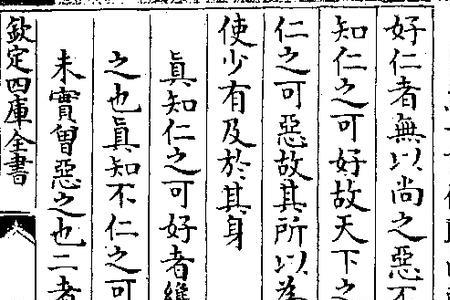 好仁者無以尚之惡不
知仁之可好故天下之
仁之可惡故其所以為
使少有及於其身
真知仁之可好者維
之也真知不仁之可
未實曾惡之也二者
欽定四庫全書